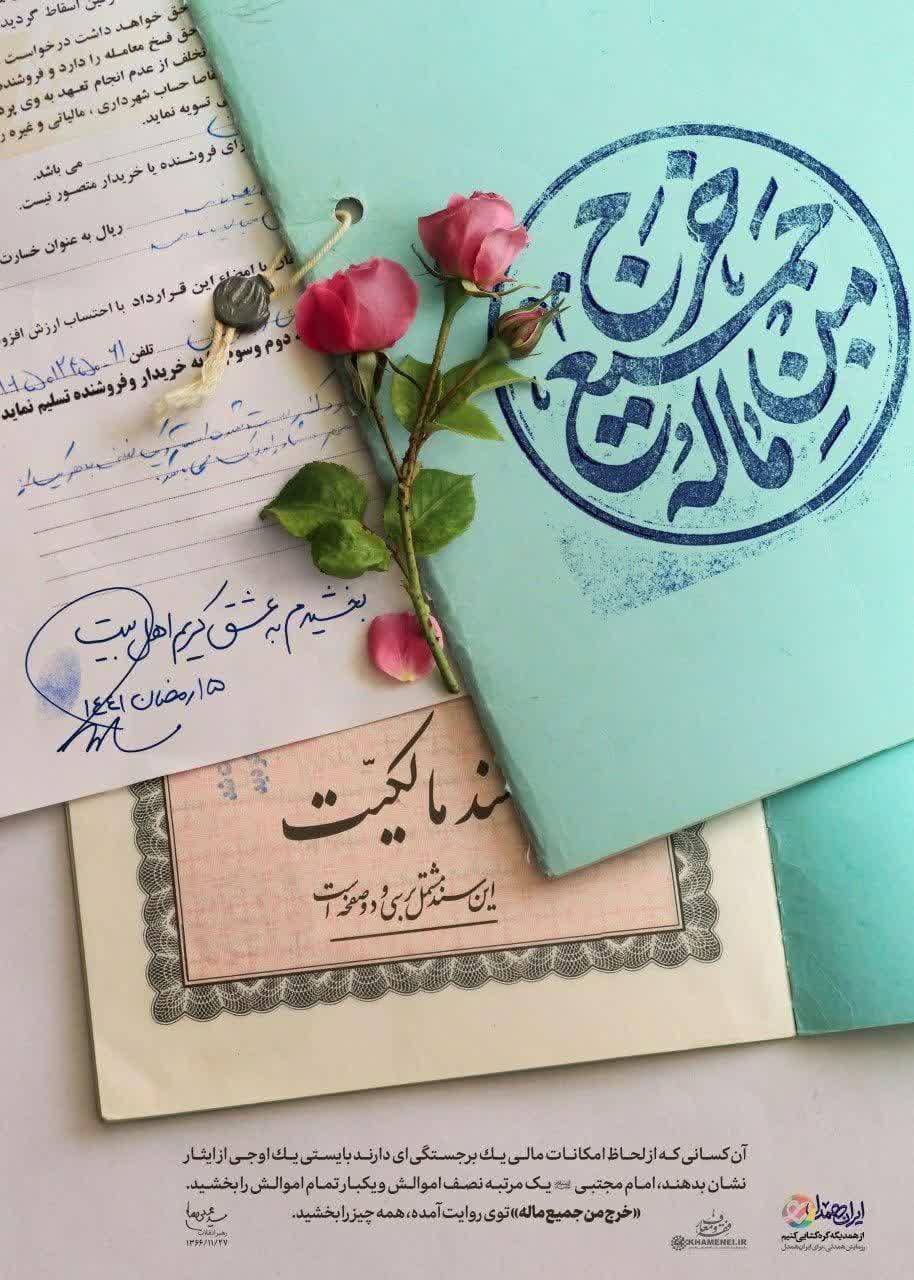 حق خواهد داشت درخواست
حق فسخ معامله را دارد و فروشنده
تخلف از عدم انجام تعهد به وی
حساب شهرداری ، مالیاتی و غیره
تسویه نماید.
می باشد.
برای فروشنده یا خریدار متصور نیست.
ریال به عنوان خسارت
با امضاء این قرارداد با احتساب ارزش افزو
تلفن
دوم وسوم به خریدار وفروشنده تسلیم نماید
خرج
من جمیع
ماله
بخشیدم به عشق کریم اهل بیت
۱۵ رمضان ۱۴۴۱
ند مالکیّت
این سند مشتمل بر سی و دو صفحه است
آن کسانی که از لحاظ امکانات مالی یك برجستگی ای دارند بایستی یك اوجی از ایثار
نشان بدهند، امام مجتبی یک مرتبه نصف اموالش و یکبار تمام اموالش را بخشید.
«خرج من جمیع ماله» توی روایت آمده، همه چیز را بخشید.
رهبر انقلاب
۱۳۶۶/۱۱/۲۷
KHAMENEI.IR
ایران همدل
از همدیگه گره گشایی کنیم
رزمایش همدلی، برای ایران همدل